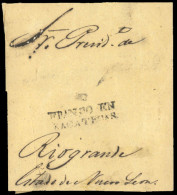 Sr. Presid.te de
FRANCO EN
ZACATECAS.
Riogrande
Estado de Nuevo Leon.